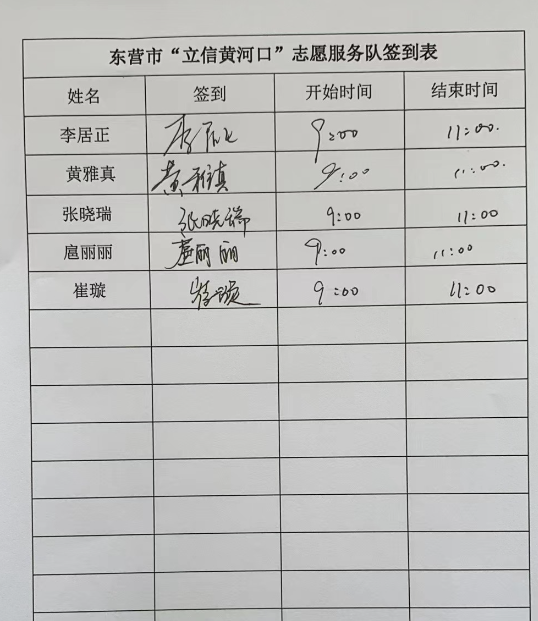 东营市“立信黄河口”志愿服务队签到表
姓名 签到 开始时间 结束时间
李居正 李居正 9:00 11:00.
黄雅真 黄雅真 9:00 11:00.
张晓瑞 张晓瑞 9:00 11:00
扈丽丽 扈丽丽 9:00 11:00
崔璇 崔璇 9:00 11:00